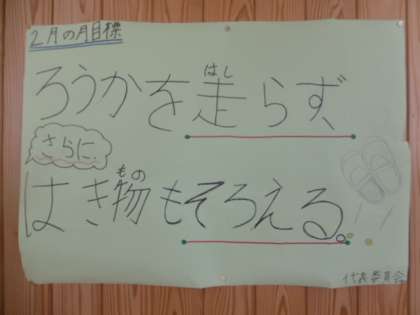 2月の月目標
ろうかを走らず、
はし
さらに
はき物もそろえる。
もの
代表委員会